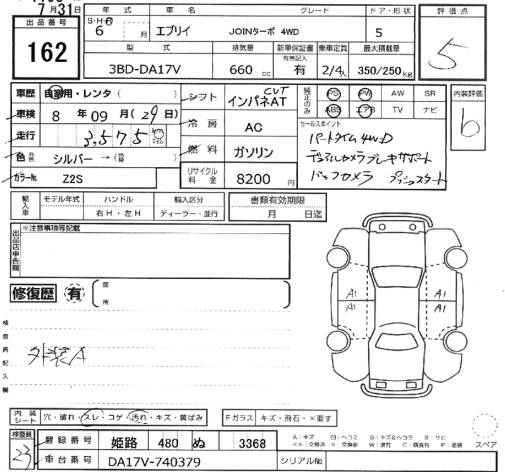 7月31日
出品番号
162
年式
S・H・R
6 年 月
車名
エブリイ
グレード
JOINターボ 4WD
ドア・形状
5
型式
3BD-DA17V
排気量
660 cc
新車保証書
有無記入
有
乗車定員
2/4人
最大積載量
350/250kg
評価点
5
車歴 自家用・レンタ ( )
車検 8年09月(29日)
走行 3,575 km
色 シルバー → (替 )
カラーNo. Z2S
シフト CVT
インパネAT
冷房 AC
燃料 ガソリン
リサイクル料金 8200円
純正のみ
PS PW AW SR
ABS エアB TV ナビ
セールスポイント
パートタイム4WD
デュアルカメラブレーキサポート
バックカメラ プッシュスタート
内装評価
b
輸入車
モデル年式
ハンドル
右H・左H
輸入区分
ディーラー・並行
書類有効期限
月 日迄
出品店申告欄
※注意事項等記載
修復歴 有
箇所
検査員記入欄
外装A
A1 A1
A1 A1
内装シート
穴・破れ・スレ・コゲ・汚れ・キズ・黄ばみ
Fガラス キズ・飛石・×要す
検査員
23
登録番号 姫路 480 ぬ 3368
車台番号 DA17V-740379
シリアルNo.
スペア